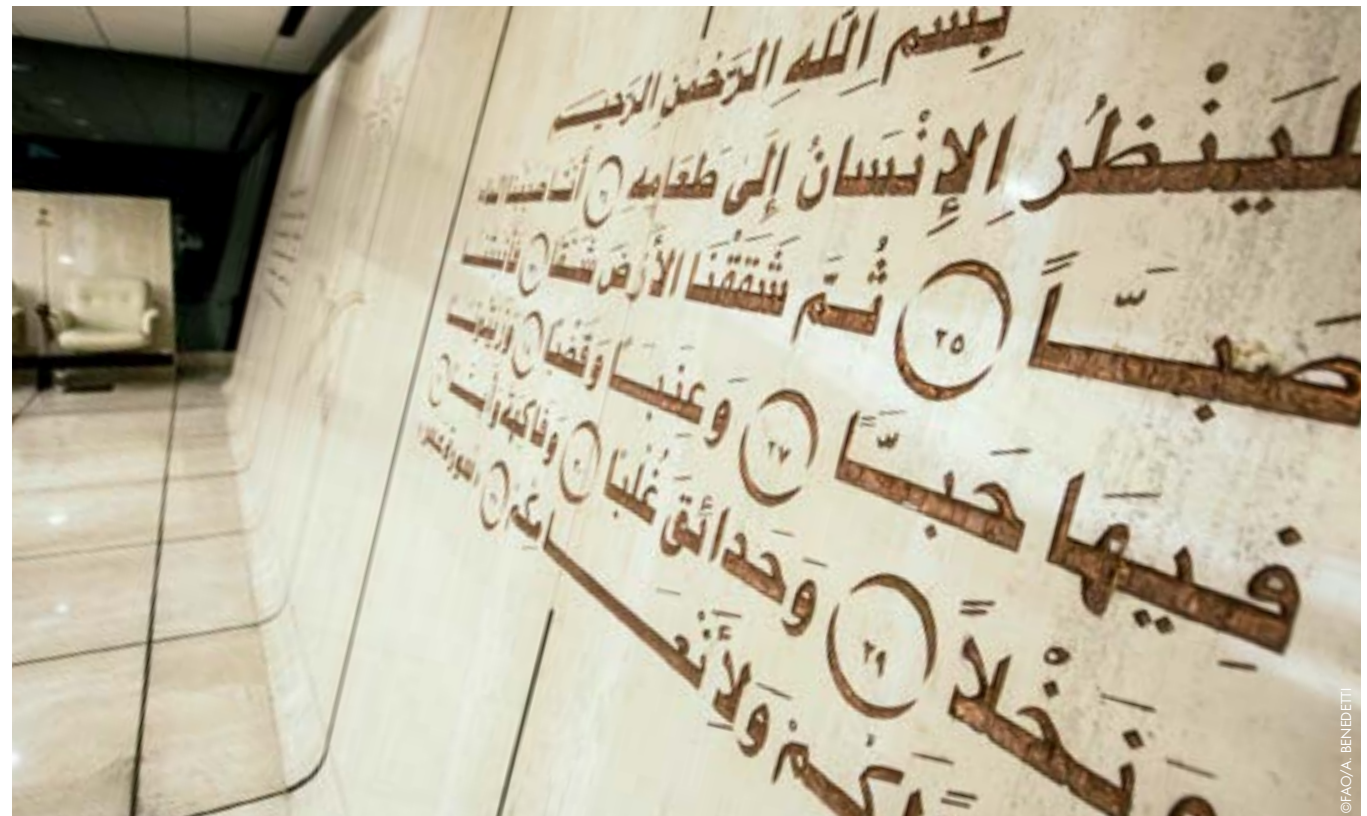 بِسْمِ اللَّهِ الرَّحْمٰنِ الرَّحِيمِ
فَلْيَنْظُرِ الإِنْسَانُ إِلَىٰ طَعَامِهِ ٢٤ أَنَّا صَبَبْنَا الْمَاءَ
صَبًّا ٢٥ ثُمَّ شَقَقْنَا الأَرْضَ شَقًّا ٢٦ فَأَنْبَتْنَا
فِيهَا حَبًّا ٢٧ وَعِنَبًا وَقَضْبًا ٢٨ وَزَيْتُونًا
وَنَخْلاً ٢٩ وَحَدَائِقَ غُلْبًا ٣٠ وَفَاكِهَةً وَأَبًّا ٣١
لَكُمْ وَلأَنْعَامِكُمْ ٣٢ سورة عبس
©FAO/A. BENEDETTI